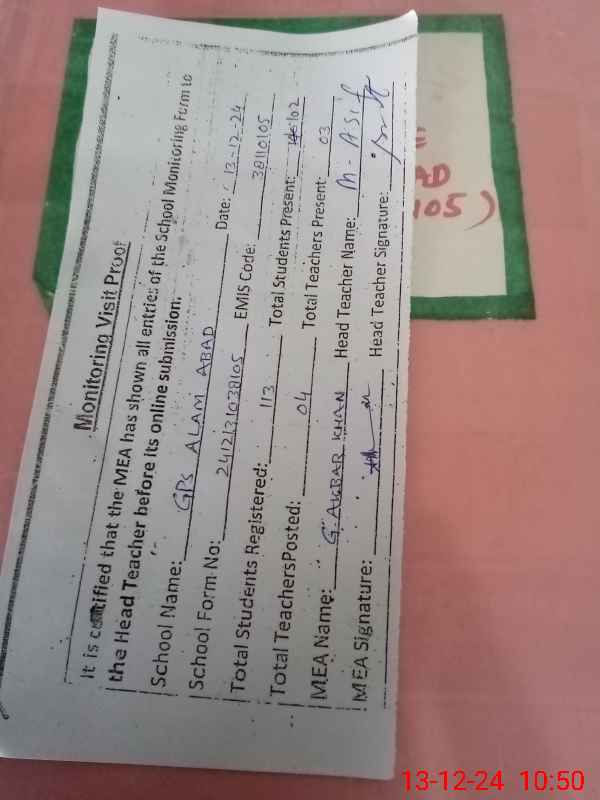 Monitoring Visit Proof
It is certified that the MEA has shown all entries of the School Monitoring Form to
the Head Teacher before its online submission.
School Name: GPS ALAM ABAD Date: 13-12-24
School Form No: 2412131038105 EMIS Code: 38110105
Total Students Registered: 113 Total Students Present: 102
Total Teachers Posted: 04 Total Teachers Present: 03
MEA Name: G. AKBAR KHAN Head Teacher Name: M-Asif
MEA Signature: Head Teacher Signature:
AD
105)
13-12-24 10:50